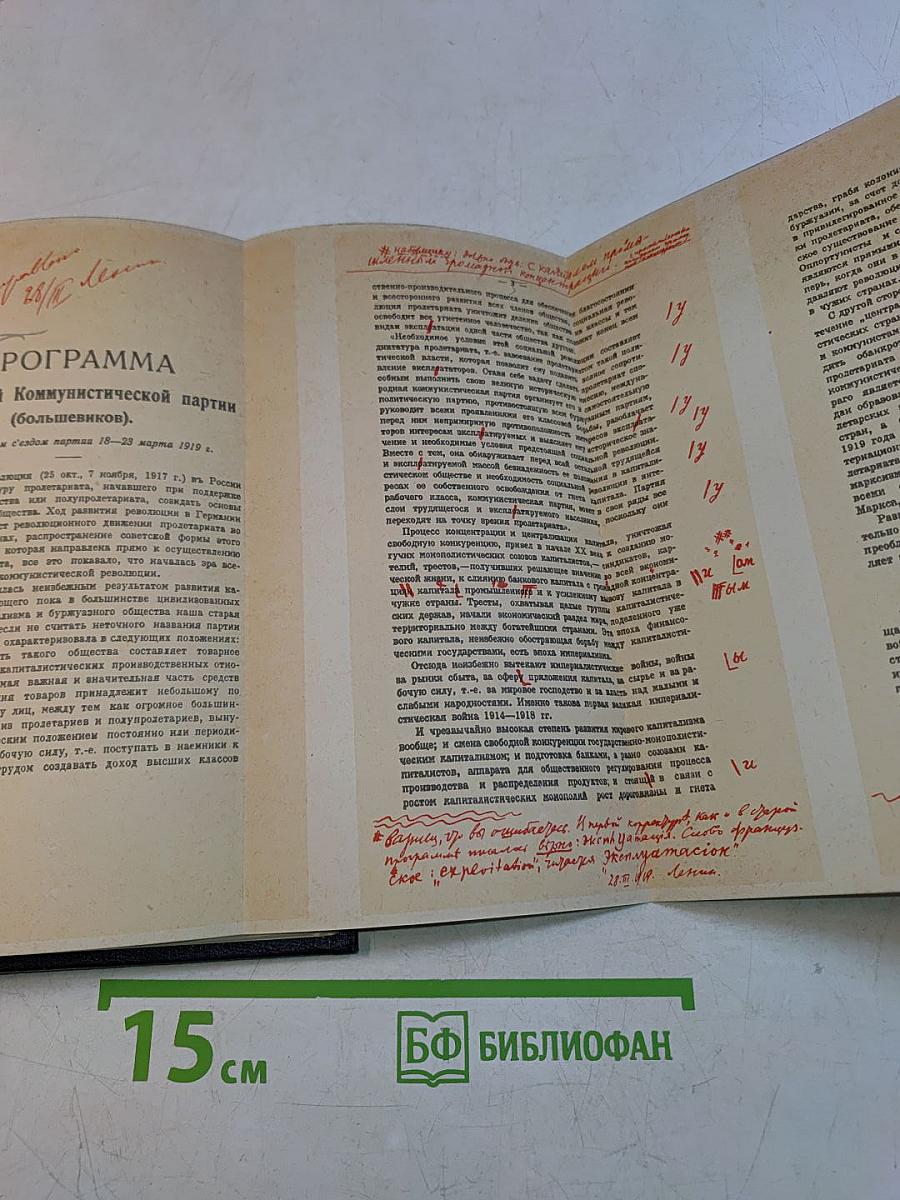 28/III Ленин.
ПРОГРАММА
Коммунистической партии
(большевиков).
съездом партии 18—23 марта 1919 г.
(25 окт., 7 ноября, 1917 г.) въ России
пролетариата, начавшего при поддержке
или полупролетариата, созидать основы
Ход развития революции в Германии
революционного движения пролетариата во
распространение советской формы этого
которая направлена прямо к осуществлению
все это показало, что началась эра все-
коммунистической революции.
неизбежным результатом развития ка-
пока в большинстве цивилизованных
и буржуазного общества наша старая
если не считать неточного названия партии
охарактеризовала в следующих положениях:
такого общества составляет товарное
капиталистических производственных отно-
важная и значительная часть средств
товаров принадлежит небольшому по
лиц, между тем как огромное большин-
из пролетариев и полупролетариев, выну-
положением постоянно или периоди-
рабочую силу, т.-е. поступать в наемники к
трудом создавать доход высших классов
— 3 —
ственно-производительного процесса для обеспечения благосостояния
и всестороннего развития всех членов общества, социальная рево-
люция пролетариата уничтожит деление общества на классы и тем
освободит все угнетенное человечество, так как положит конец всем
видам эксплатации одной части общества другою.
«Необходимое условие этой социальной революции составляет
диктатура пролетариата, т.-е. завоевание пролетариатом такой поли-
тической власти, которая позволит ему подавить всякое сопроти-
вление эксплататоров. Ставя себе задачу сделать пролетариат спо-
собным выполнить свою великую историческую миссию, междуна-
родная коммунистическая партия организует его в самостоятельную
политическую партию, противостоящую всем буржуазным партиям,
руководит всеми проявлениями его классовой борьбы, разоблачает
перед ним непримиримую противоположность интересов эксплата-
торов интересам эксплатируемых и выясняет ему историческое зна-
чение и необходимые условия предстоящей социальной революции.
Вместе с тем, она обнаруживает перед всей остальной трудящейся
и эксплатируемой массой безнадежность ее положения в капитали-
стическом обществе и необходимость социальной революции в инте-
ресах ее собственного освобождения от гнета капитала. Партия
рабочего класса, коммунистическая партия, зовет в свои ряды все
слои трудящегося и эксплатируемого населения, поскольку они
переходят на точку зрения пролетариата».
Процесс концентрации и централизации капитала, уничтожая
свободную конкуренцию, привел в начале XX века к созданию мо-
гучих монополистических союзов капиталистов,—синдикатов, кар-
телей, трестов,—получивших решающее значение во всей экономи-
ческой жизни, к слиянию банкового капитала с громадной концентра-
ции капитала промышленного и к усиленному вывозу капитала в
чужие страны. Тресты, охватывая целые группы капиталистиче-
ских держав, начали экономический раздел мира, поделенного уже
территориально между богатейшими странами. Эта эпоха финансо-
вого капитала, неизбежно обостряющая борьбу между капиталисти-
ческими государствами, есть эпоха империализма.
Отсюда неизбежно вытекают империалистские войны, войны
за рынки сбыта, за сферу приложения капитала, за сырье и за ра-
бочую силу, т.-е. за мировое господство и за власть над малыми и
слабыми народностями. Именно такова первая великая империали-
стическая война 1914—1918 гг.
И чрезвычайно высокая степень развития мирового капитализма
вообще; и смена свободной конкуренции государственно-монополисти-
ческим капитализмом; и подготовка банками, а равно союзами ка-
питалистов, аппарата для общественного регулирования процесса
производства и распределения продуктов; и стоящий в связи с
ростом капиталистических монополий рост дороговизны и гнета
у
у
у
у
у
у
и
ом
тым
ы
и
вы ошибаетесь. И первой корректуре, как и в старой
программе писалось верно: эксплуатация. Слово француз-
ское: „exploitation", читается „эксплуатасion"
28.III.1919. Ленин.
дарства, грабя колони
буржуазии, за счет до
в привилегированное
ки пролетариата, обе
ское существование
Оппортунисты и с
являются прямыми
перь, когда они в
давляют революци
в чужих странах.
С другой сторо
течение „центра
стических стран
и коммунистам
дить обанкрот
пролетариата
коммунистиче
раго являетс
дан образоват
летарских
стран, а
1919 года
тернацион
летариато
марксизм
всеми
Маркса,
Разв
тельно
преобл
ляет
15 см
БФ БИБЛИОФАН